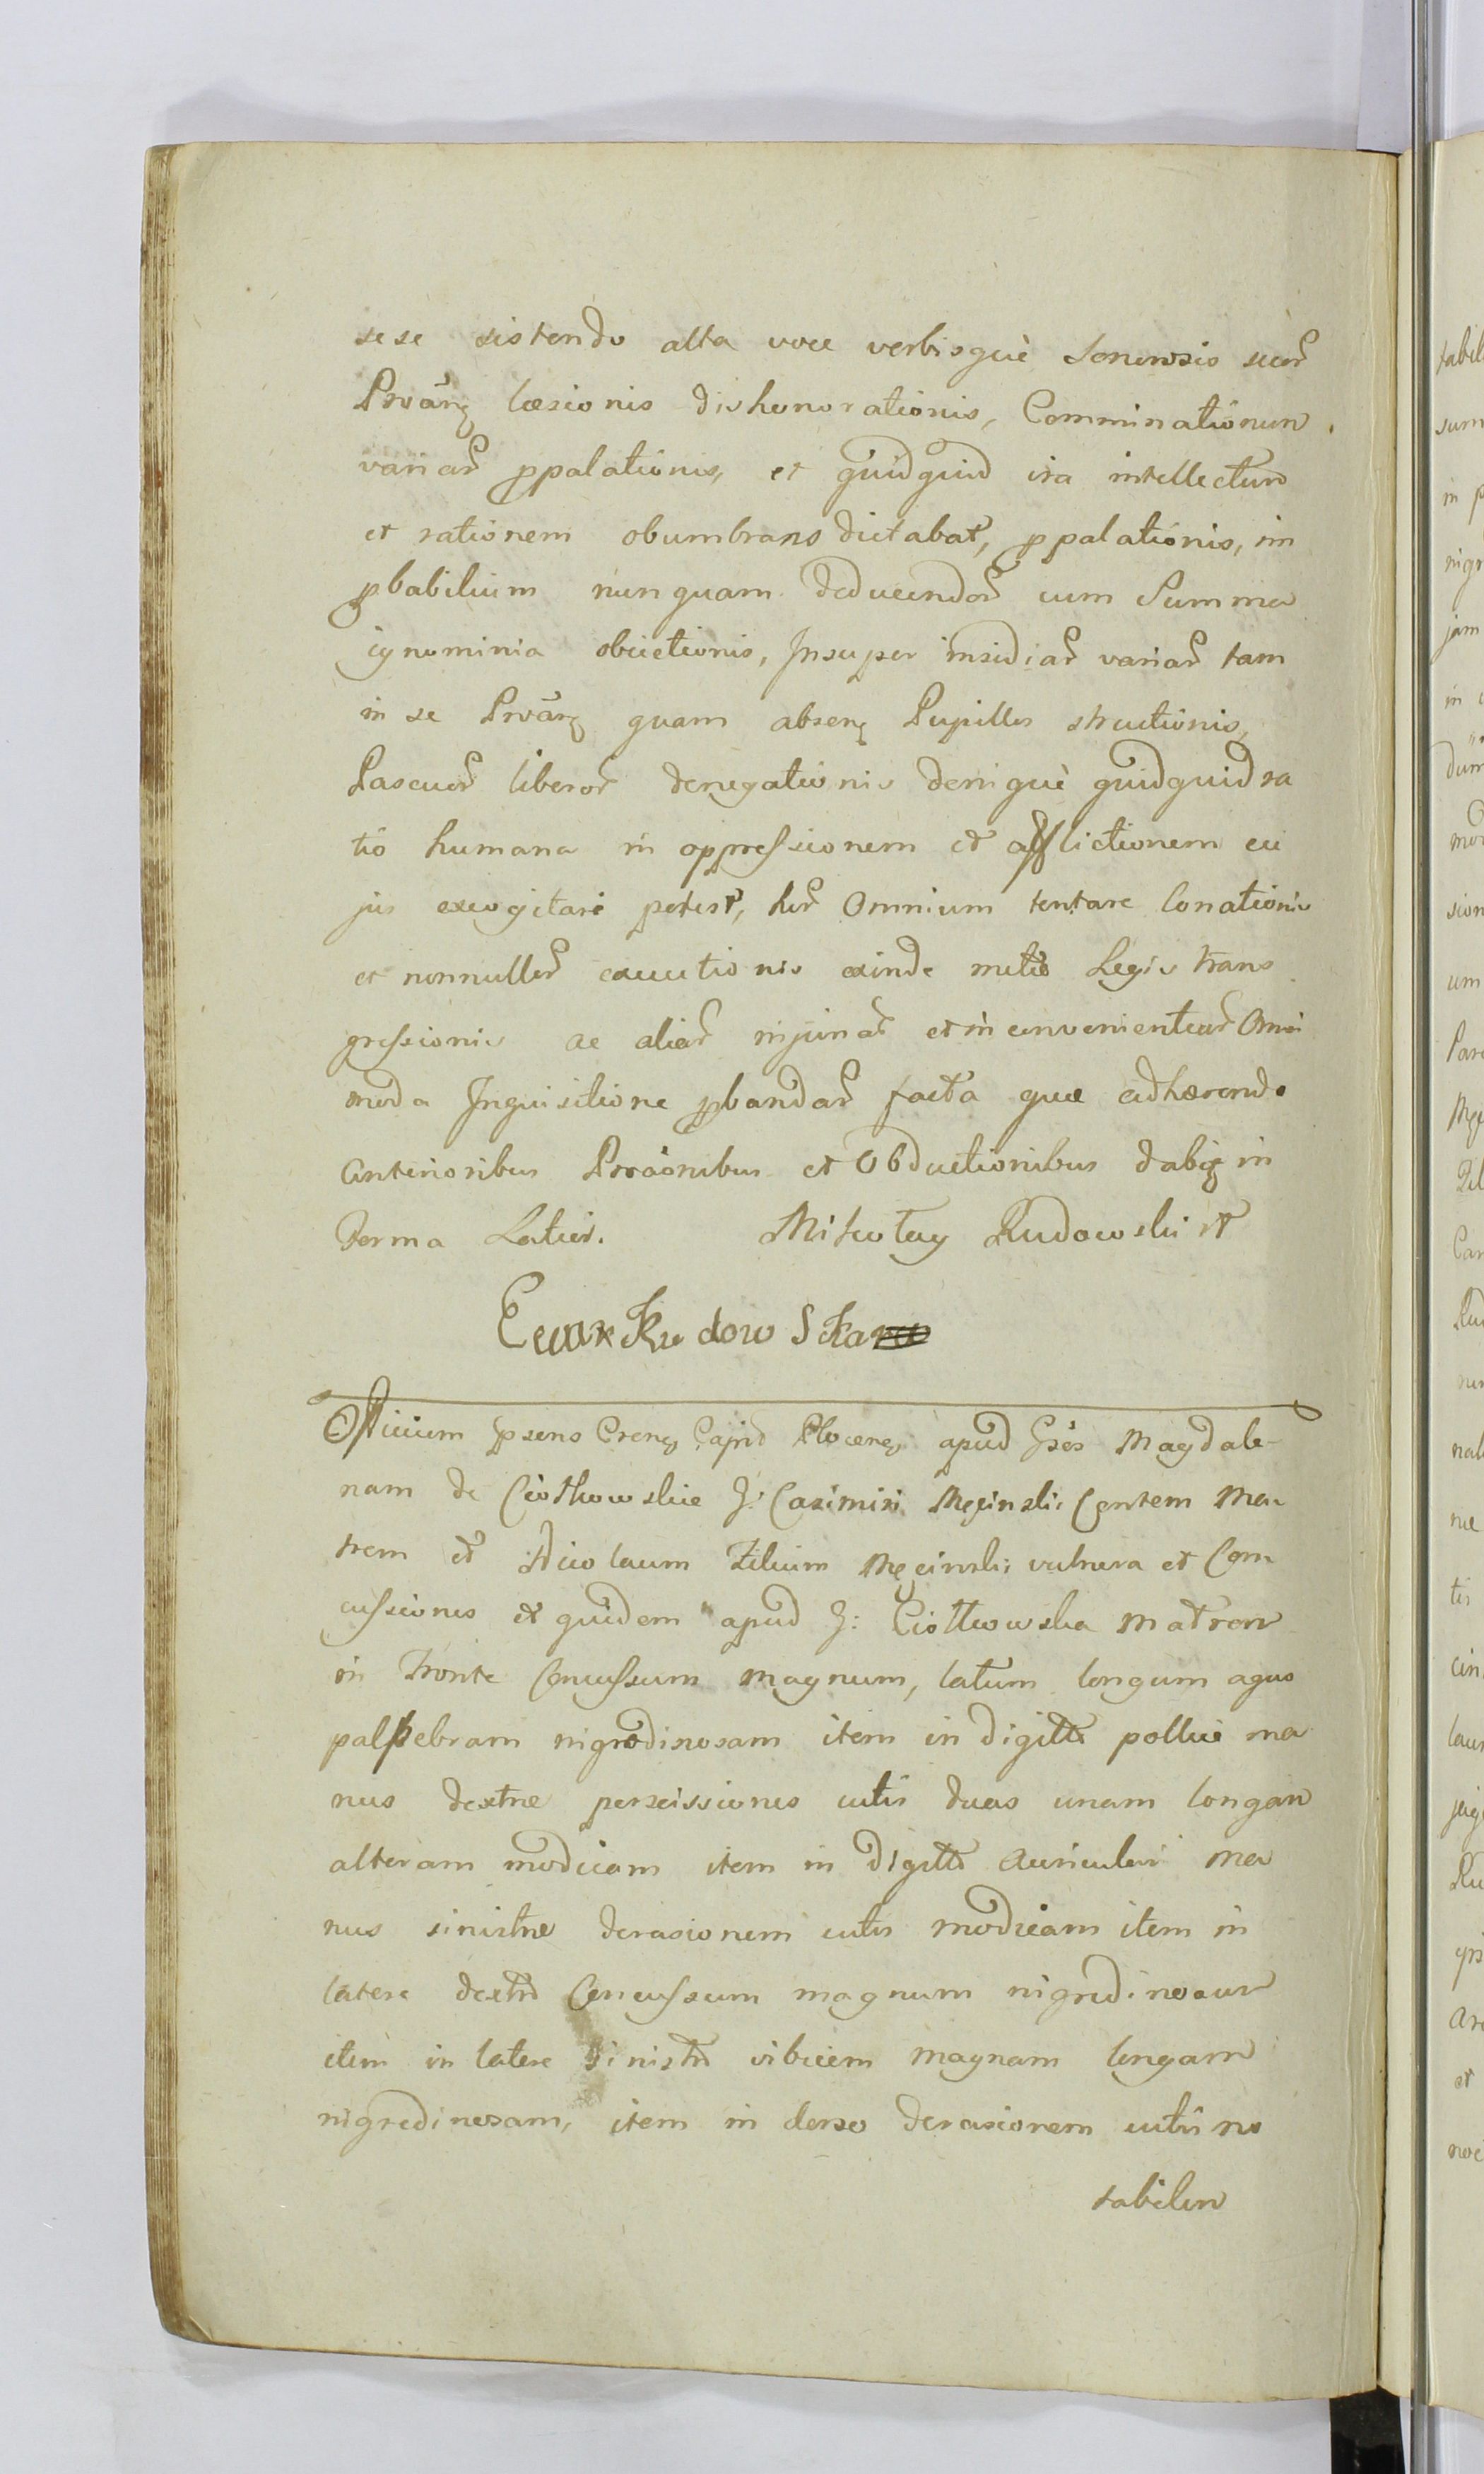 sese sistendo alta voce verbisquè Sonorosis suor
Prvãnq læsionis dishonorationis, Comminationum
variar ppalationis, et quidquid ira intellectum
et rationem obumbrans dictabat, ppalationis, im
pbabilium nunquam deducendor cum Summa
ignominia obiectionis, Insuper insidiar variar tam
in se Prvãnq quam absenq Pupillos structionis,
Pascuor liberor denegationis deniquè quidquid ra
tio humana in oppressionem et afflictionem cu
jus excogitare potest, hor Omnium tentare Conationis
et nonnullor executionis exinde metio Legis trans
gressionis ac aliar injuriar et in convenientiar Omni
moda Inquisitione pbandar facta quæ adhærendo
Anterioribus Prvaonibus et Obductionibus dabiq in
Forma Latior. Mikołay Rudowski et
Ewa Rudow Ska
Officium psens Crenq Capit Plocenq apud Gsos Magdale-
nam de Ciołkowskie G: Casimiri Męcinski Contem Ma-
trem et Nicolaum Filium Męcinski vulnera et Con
cussiones et quidem apud G: Ciołkowska Matrem
in Fronte Concussum magnum, latum longum aquo
palpebram nigrodinosam item in digitto pollice ma
nus dextræ perscissiones cutis duas unam longam
alteram modicam item in digitto Auriculari ma
nus sinistræ derasionem cutis modicam item in
latere dextro Concussum magnum nigredinosum
item in latere Sinistro vibicem magnam longam
nigredinosam, item in dorso derasionem cutis no
tabilem